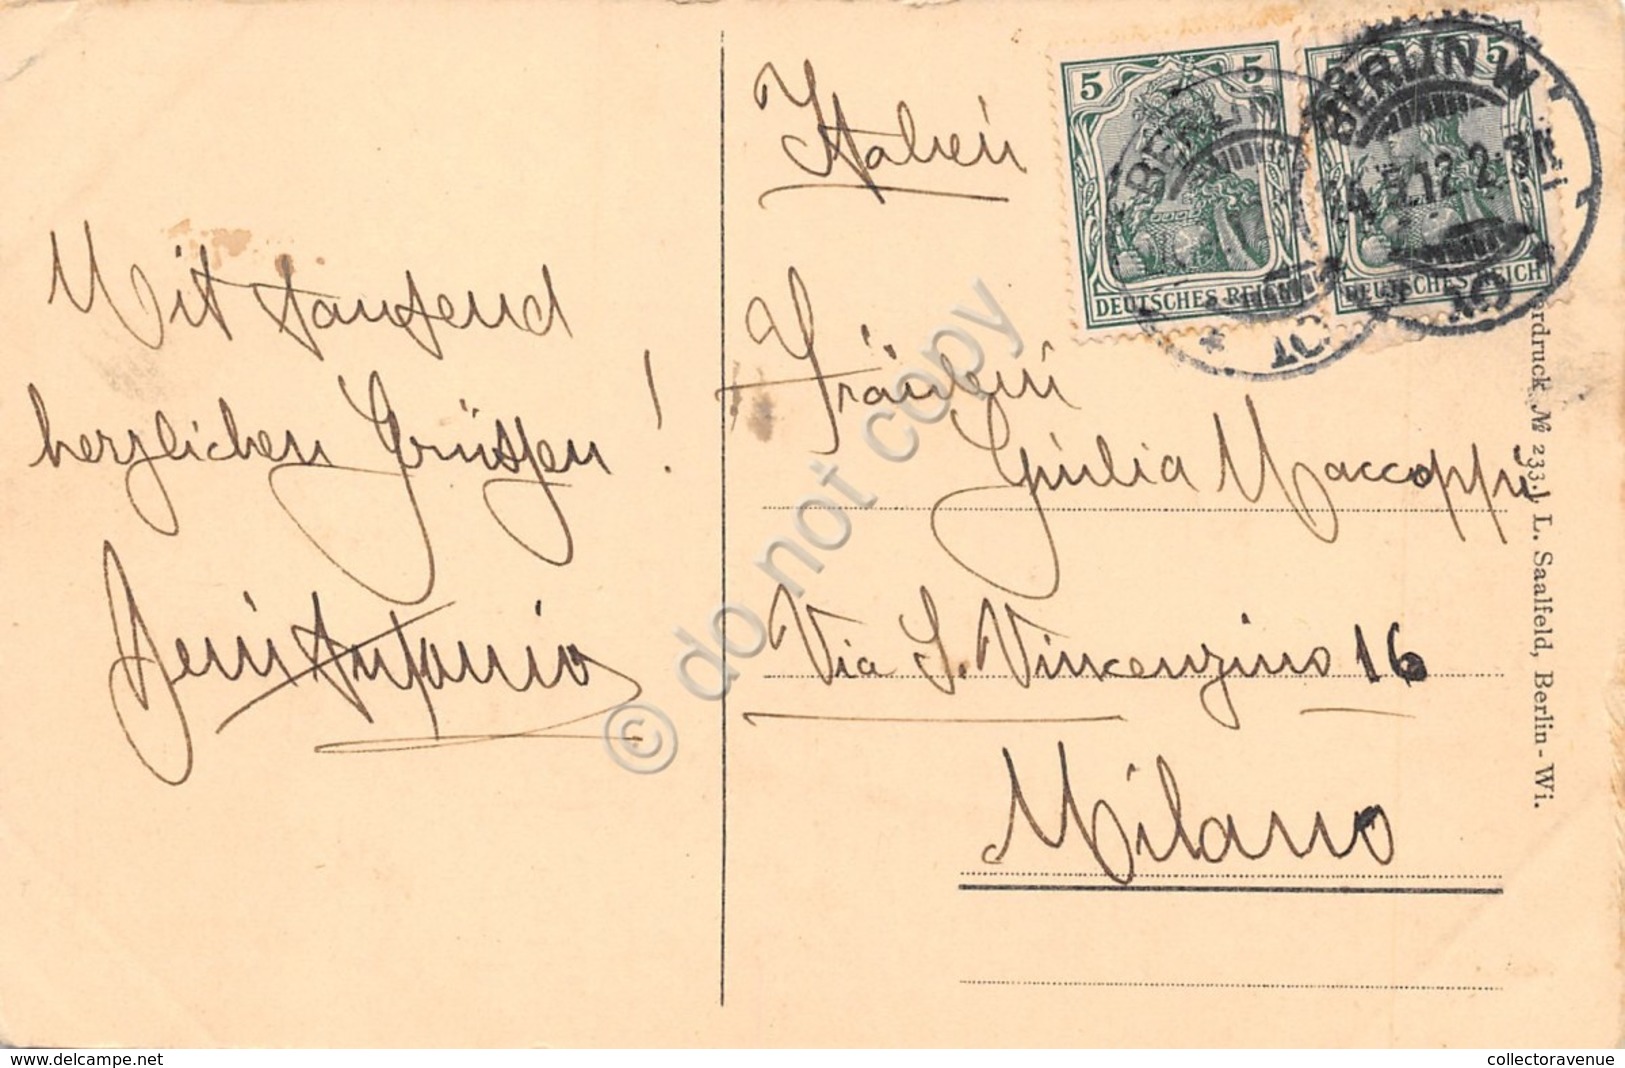 Mit tausend
herzlichen Grüssen!
Antonio
Italien
Fräulein
Giulia Maccoppi
Via S. Vincenzino 16
Milano
5 5
DEUTSCHES REICH
5 5
DEUTSCHES REICH
BERLIN W
12 2-3N.
* 10
* 10 *
BERL
rdruck № 233. J. L. Saalfeld, Berlin-Wi.
© do not copy
www.delcampe.net
collectoravenue